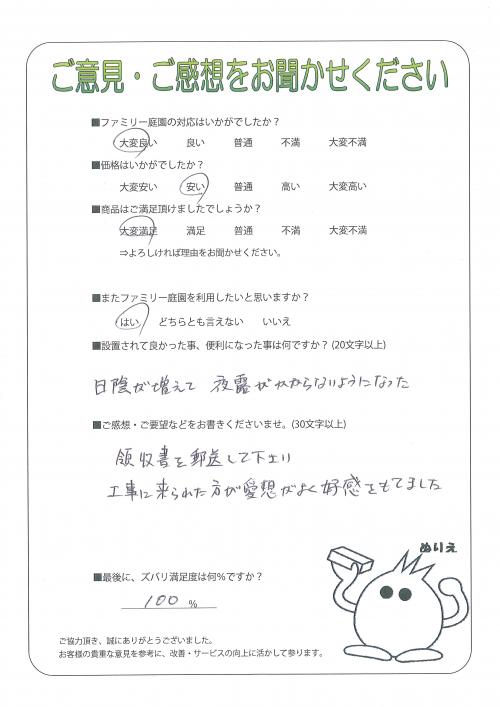 ご意見・ご感想をお聞かせください
■ファミリー庭園の対応はいかがでしたか？
大変良い 良い 普通 不満 大変不満
■価格はいかがでしたか？
大変安い 安い 普通 高い 大変高い
■商品はご満足頂けましたでしょうか？
大変満足 満足 普通 不満 大変不満
⇒よろしければ理由をお聞かせください。
■またファミリー庭園を利用したいと思いますか？
はい どちらとも言えない いいえ
■設置されて良かった事、便利になった事は何ですか？(20文字以上)
日陰が増えて 夜露がかからないようになった
■ご感想・ご要望などをお書きくださいませ。(30文字以上)
領収書を郵送して下さい
工事に来られた方が愛想がよく好感をもてました
ぬりえ
■最後に、ズバリ満足度は何％ですか？
100 %
ご協力頂き、誠にありがとうございました。
お客様の貴重な意見を参考に、改善・サービスの向上に活かして参ります。